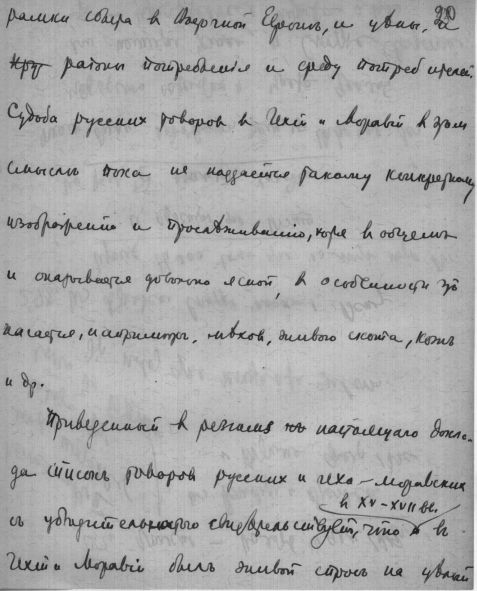 210
рынки сбыта в Западной Европѣ, и цѣны, и
районы потребленiя и среду потребителей.
Судьба русских товаров в Чехiи и Моравiи в этом
смыслѣ пока не поддается такому конкретному
изображенiю и прослѣживанiю, хотя в общем
и оказывается довольно ясной, в особенности что
касается, напримѣръ, мѣхов, живого скота, кожъ
и др.
Приведенный в резюмэ настоящаго докла-
да список товаров русских и чехо-моравских
в XV-XVII вв.
съ убѣдительностью свидѣтельствует, что в
Чехiи и Моравiи былъ живой спрос на цѣлый